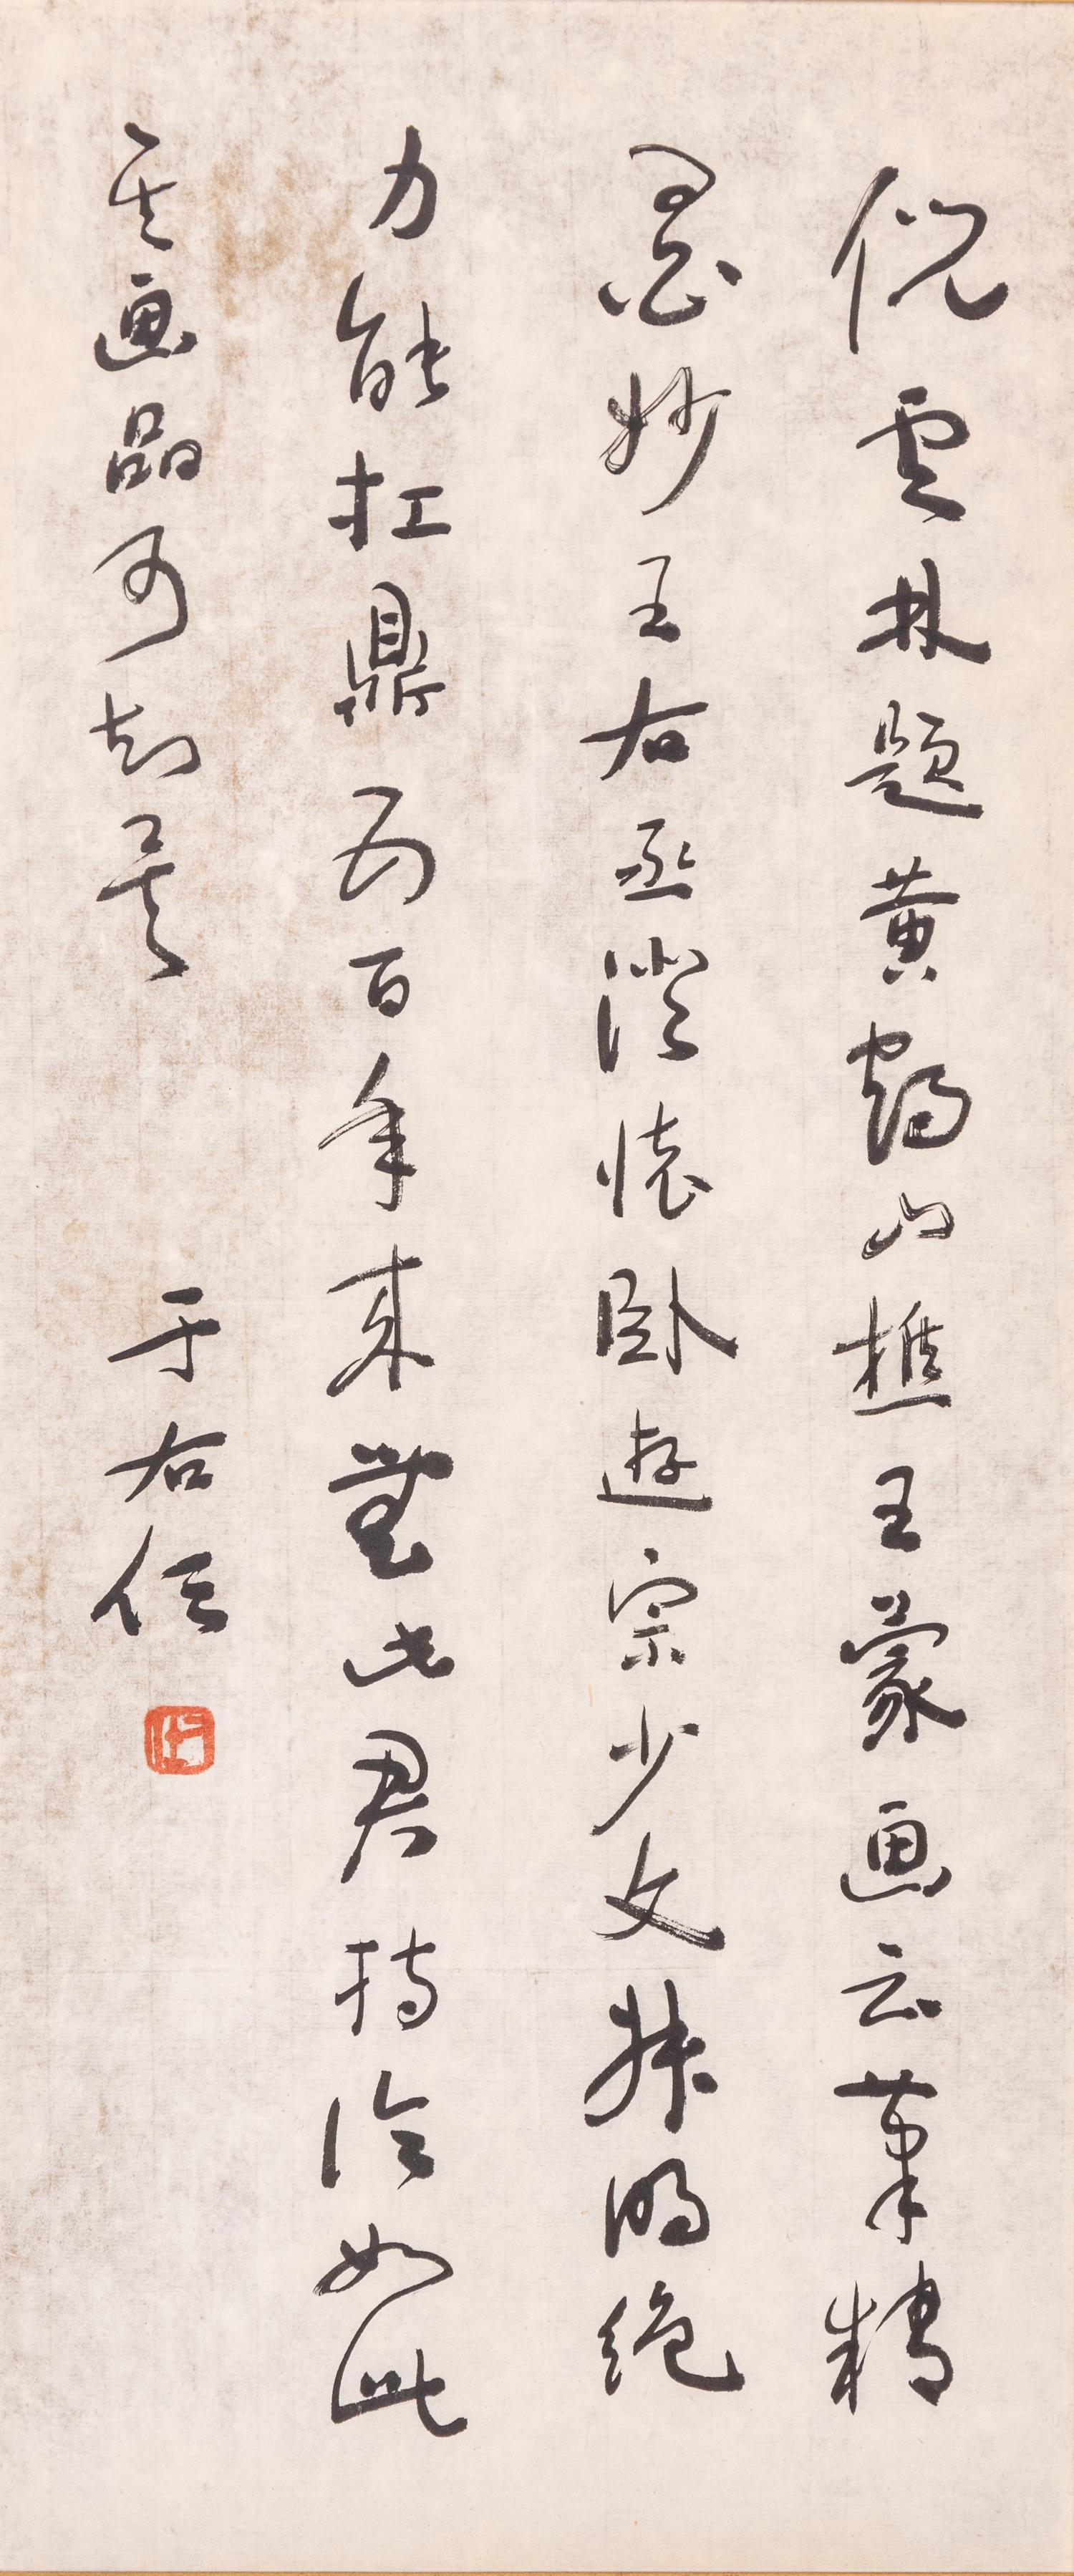 倪雲林題黃鶴山樵王蒙画云筆精
墨妙王右丞澄懷臥遊宗少文叔明絕
力能扛鼎五百年來無此君持論如此
其画品可知矣 于右任